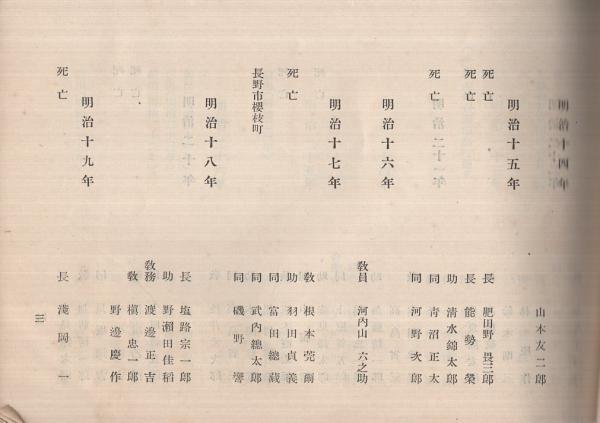 明治十四年
山本友二郎
明治十五年
死亡 長 肥田野畏三郎
死亡 長 能勢榮
助 清水錦太郎
死亡 同 靑沼正太
同 河野次郎
明治十六年
敎員 河內山六之助
明治十七年
敎 根本莞爾
死亡 助 羽田貞義
同 富田總藏
長野市櫻枝町 同 武內總太郎
同 磯野響
明治十八年
長 塩路宗一郎
助 野瀨田佳稻
敎務 渡邊正吉
敎 槇忠一郎
野邊慶作
明治十九年
死亡 長 淺岡一
三